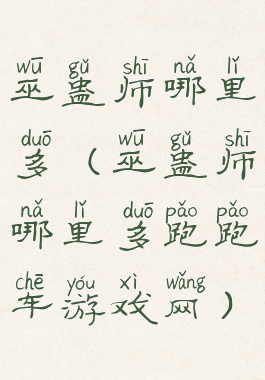 wū gǔ shī nǎ lǐ
巫蛊师哪里
duō wū gǔ shī
多（巫蛊师
nǎ lǐ duō pǎo pǎo
哪里多跑跑
chē yóu xì wǎng
车游戏网）